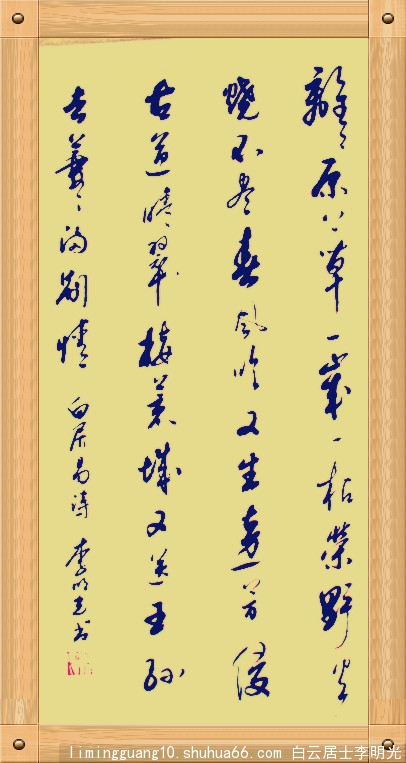 離々原上草一歲一枯榮野火
燒不盡春風吹又生遠芳侵
古道晴翠接荒城又送王孫
去萋々滿別情 白居易诗 李明光书
limingguang10.shuhua66.com 白云居士李明光